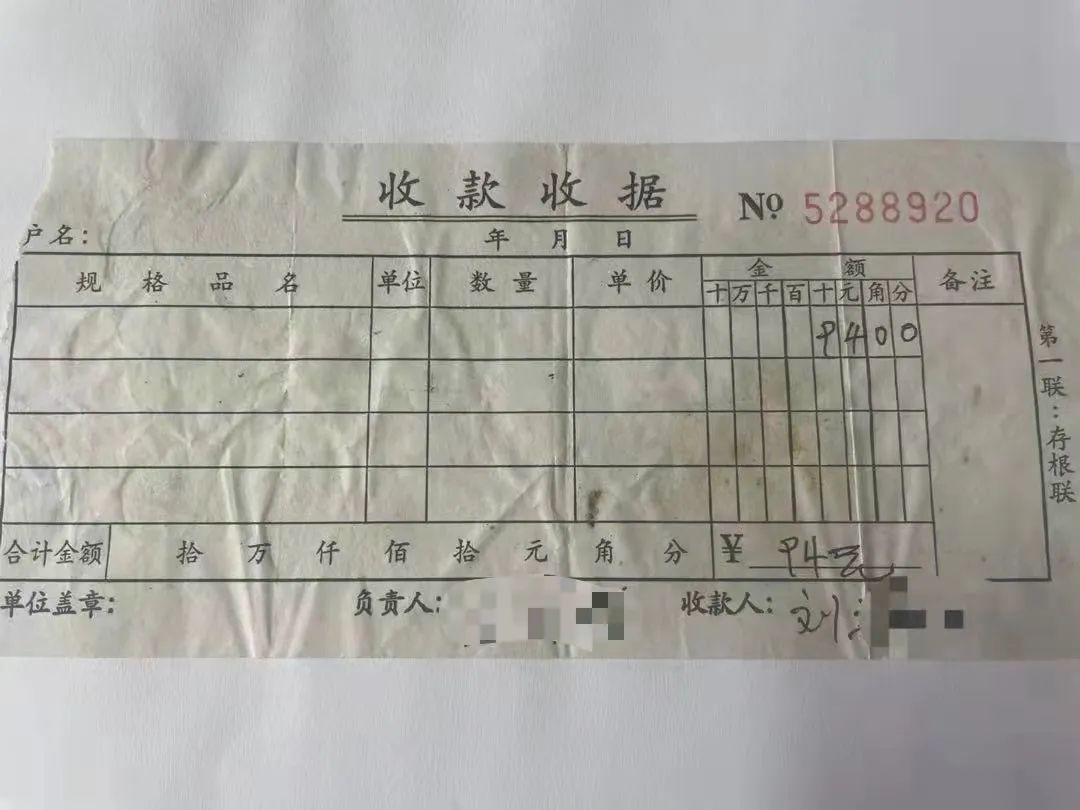 收款收据 № 5288920
户名： 年 月 日
规格品名 单位 数量 单价 金额 备注
十 万 千 百 十 元 角 分
9 4 0 0
合计金额 拾 万 仟 佰 拾 元 角 分 ¥ 94元
单位盖章： 负责人： 收款人： 刘
第一联：存根联